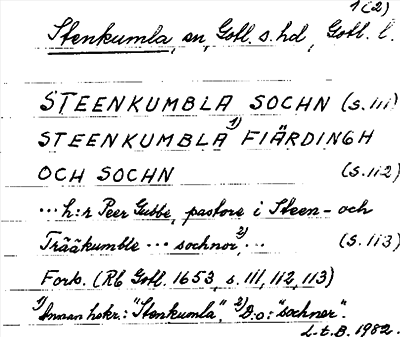 1(2)
Stenkumla, sn, Gotl. s. hd, Gotl. l.
STEENKUMBLA SOCHN (s. 111)
STEENKUMBLA 1) FIÄRDINGH
OCH SOCHN (s. 112)
... h:r Peer Gubbe, pastore i Steen- och
Trääkumble ... sochnor 2), ... (s. 113)
Fork. (Rb Gotl. 1653, s. 111, 112, 113)
1) Annan hskr.: "Stenkumla", 2) D:o: "sochner".
L-t.B. 1982.